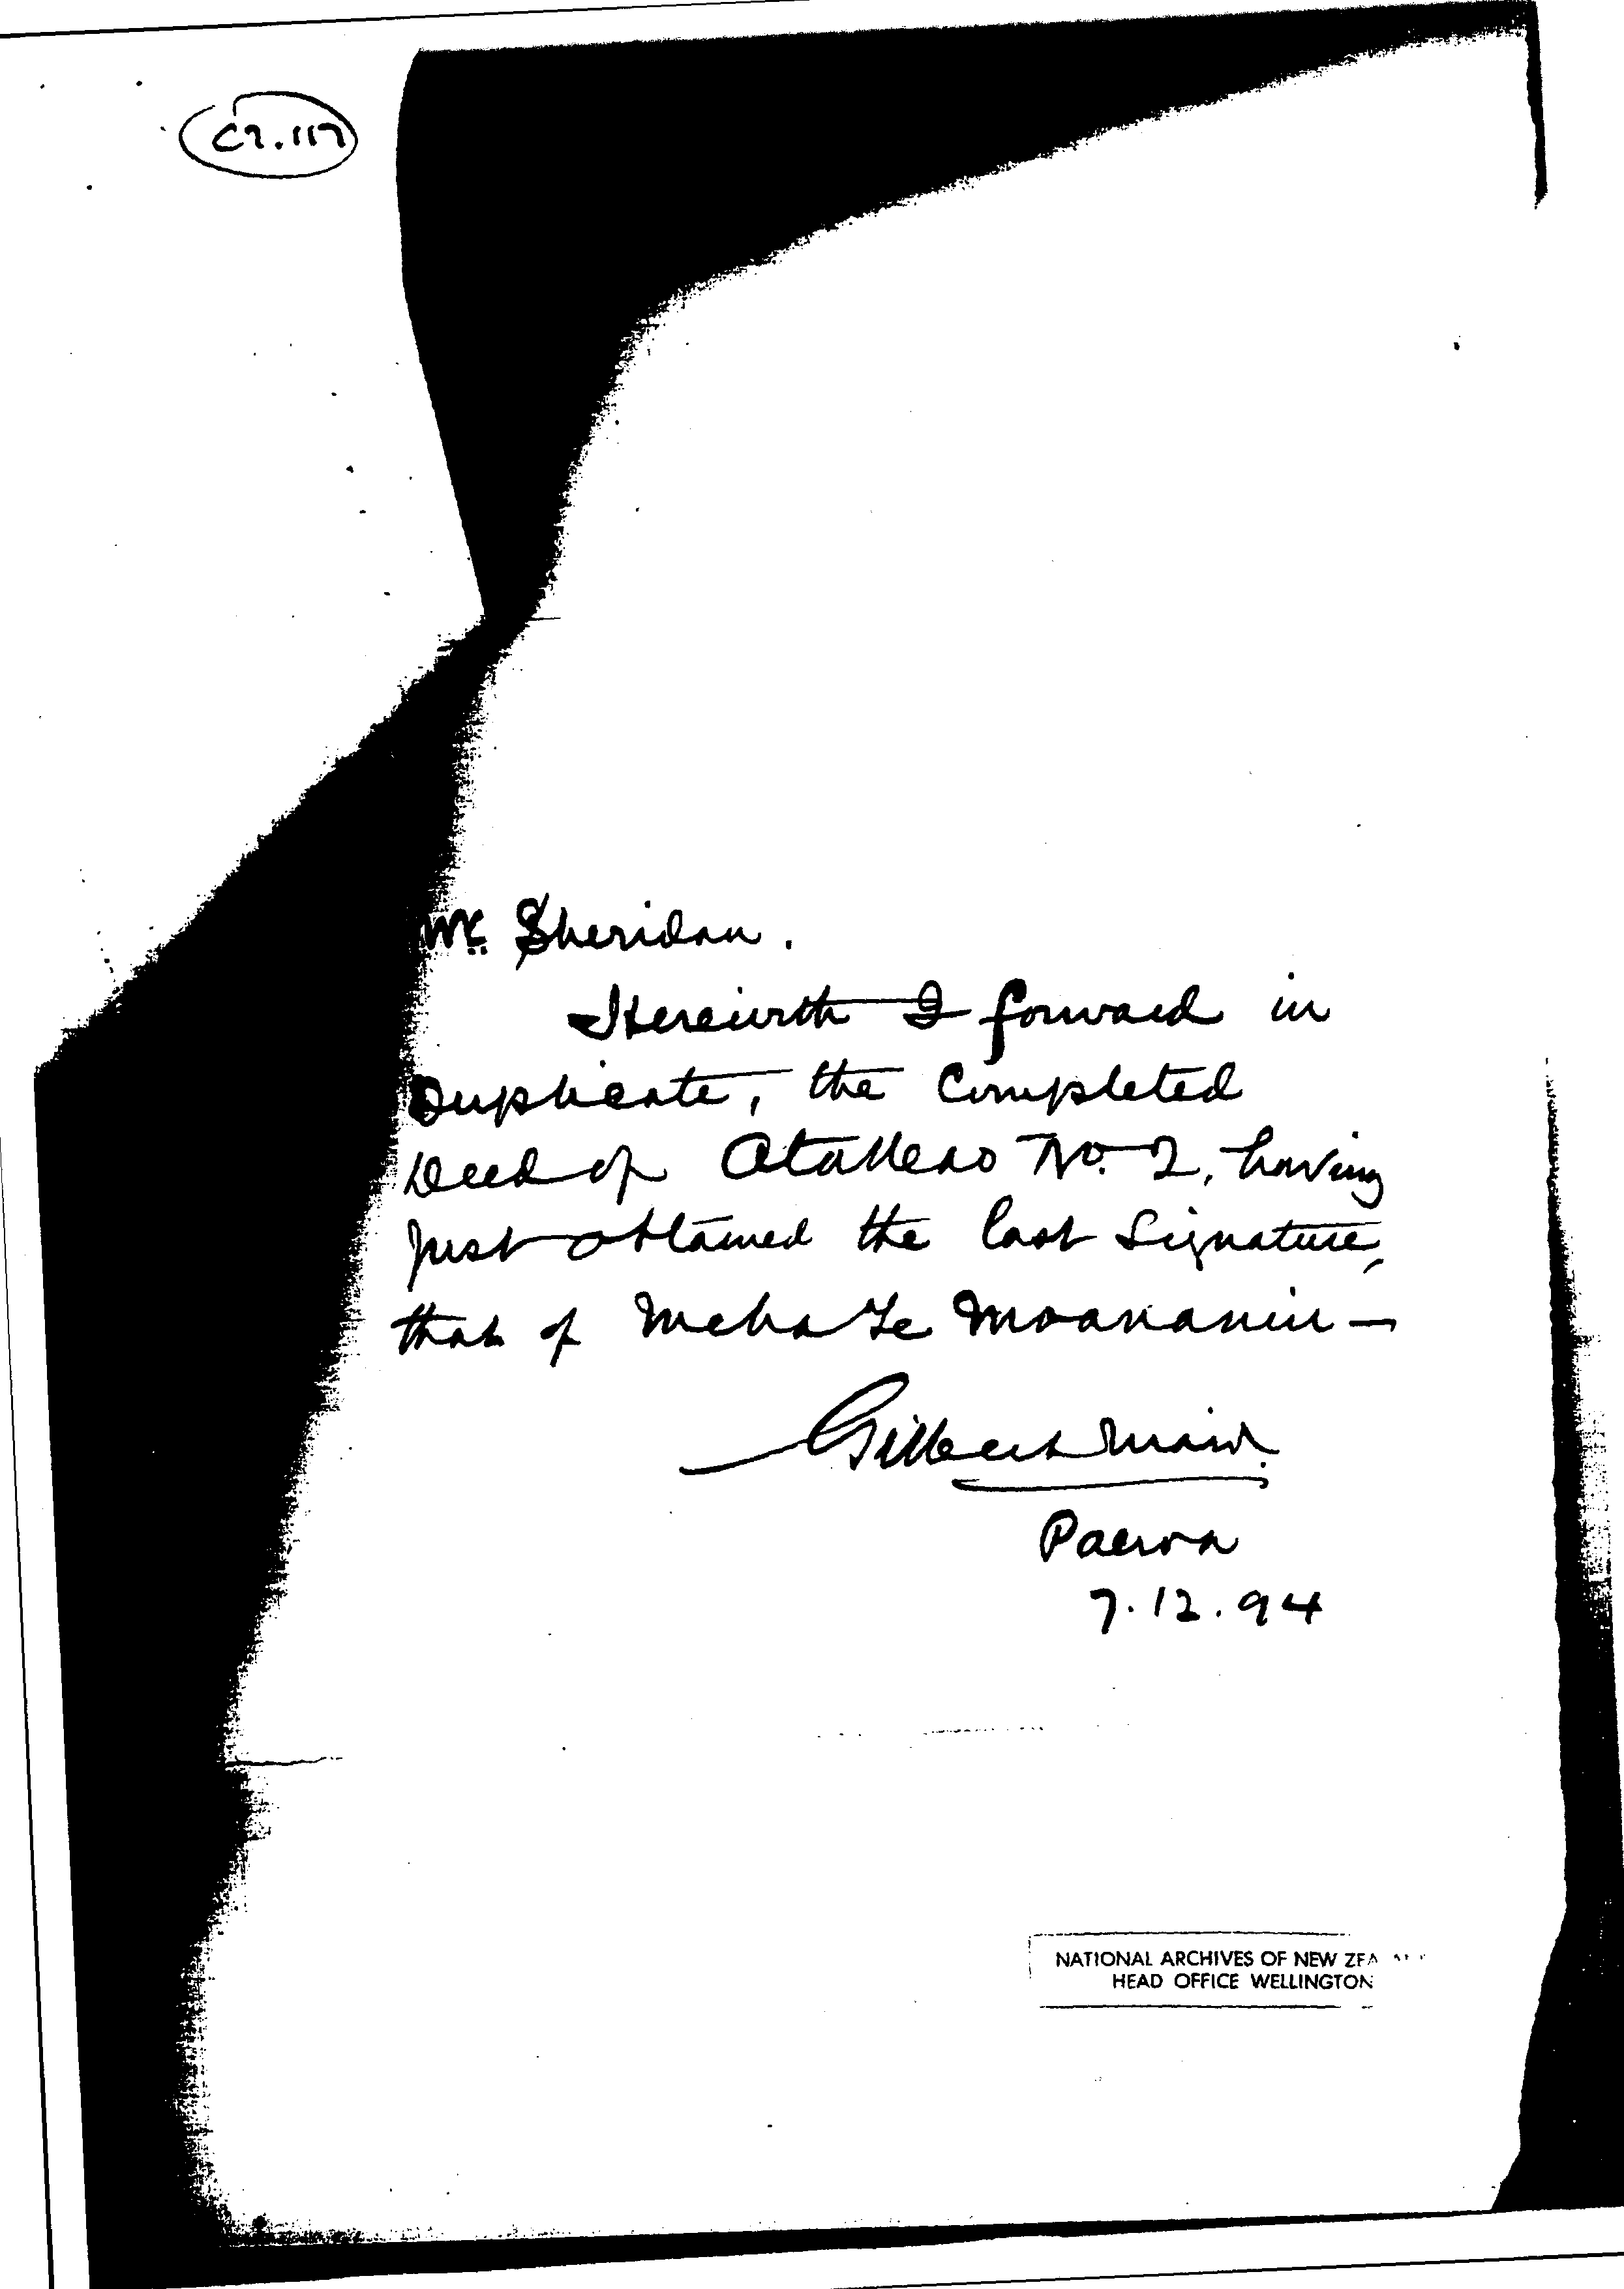 C7.117
Mr. Sheridan.
Herewith I forward in
Duplicate, the Completed
Deed of No. 2, having
just obtained the last Signature,
that of Te Moananui —
Gilbert Mair.
Paeroa
7.12.94
NATIONAL ARCHIVES OF NEW ZEA
HEAD OFFICE WELLINGTON